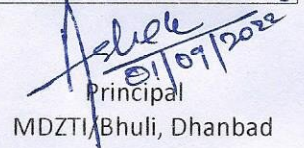 Ashok
01/09/2022
Principal
MDZTI/Bhuli, Dhanbad